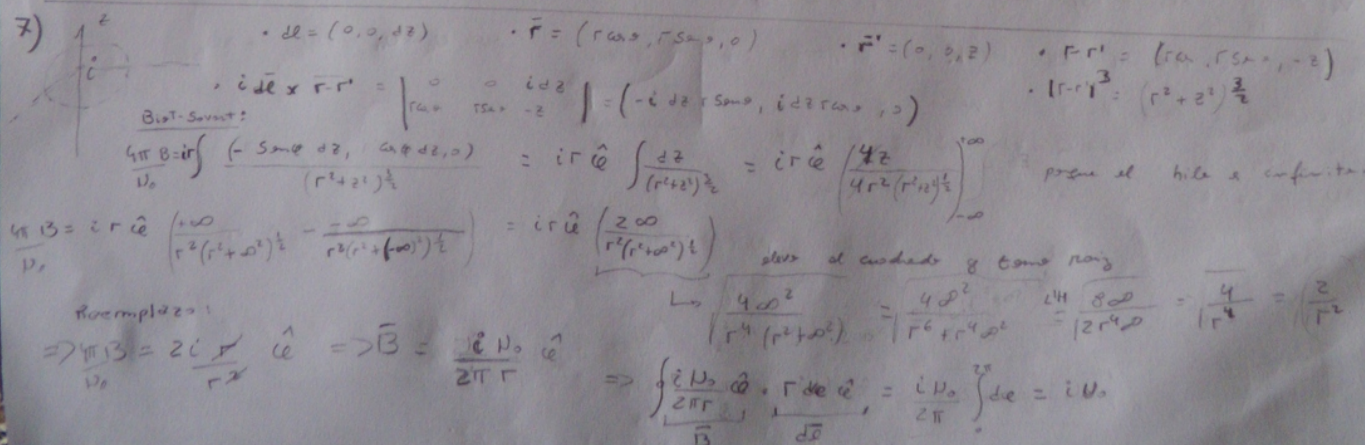 7) z i
· dl = (0, 0, dz) · r̄ = (r cos φ, r sen φ, 0) · r̄' = (0, 0, z) · r-r' = (r cos φ, r sen φ, -z)
· i dl̄ x r-r' = | 0 0 i dz | r cos φ r sen φ -z | = (-i dz r sen φ, i dz r cos φ, 0) · |r-r'|³ = (r² + z²)^3/2
Biot-Savart:
4π B/μ₀ = ir ∫ (- sen φ dz, cos φ dz, 0) / (r²+z²)^3/2 = i r φ̂ ∫ dz / (r²+z²)^3/2 = i r φ̂ ( 4z / 4r²(r²+z²)^1/2 ) +∞ -∞ porque el hilo es infinito
4π B/μ₀ = i r φ̂ ( +∞ / r²(r²+∞²)^1/2 - -∞ / r²(r²+(-∞)²)^1/2 ) = i r φ̂ ( 2∞ / r²(r²+∞²)^1/2 )
elevo al cuadrado y tomo raiz
↳ √( 4∞² / r⁴(r²+∞²) ) = √( 4∞² / r⁶+r⁴∞² ) L'H = √( 8∞ / 2r⁴∞ ) = √( 4 / r⁴ ) = 2 / r²
Reemplazo:
=> 4π B̄/μ₀ = 2i r/r² φ̂ => B̄ = i μ₀ / 2π r φ̂
=> ∮ i μ₀ / 2πr φ̂ · r dφ φ̂ = i μ₀ / 2π ∫ 2π 0 dφ = i μ₀
B̄ dl̄